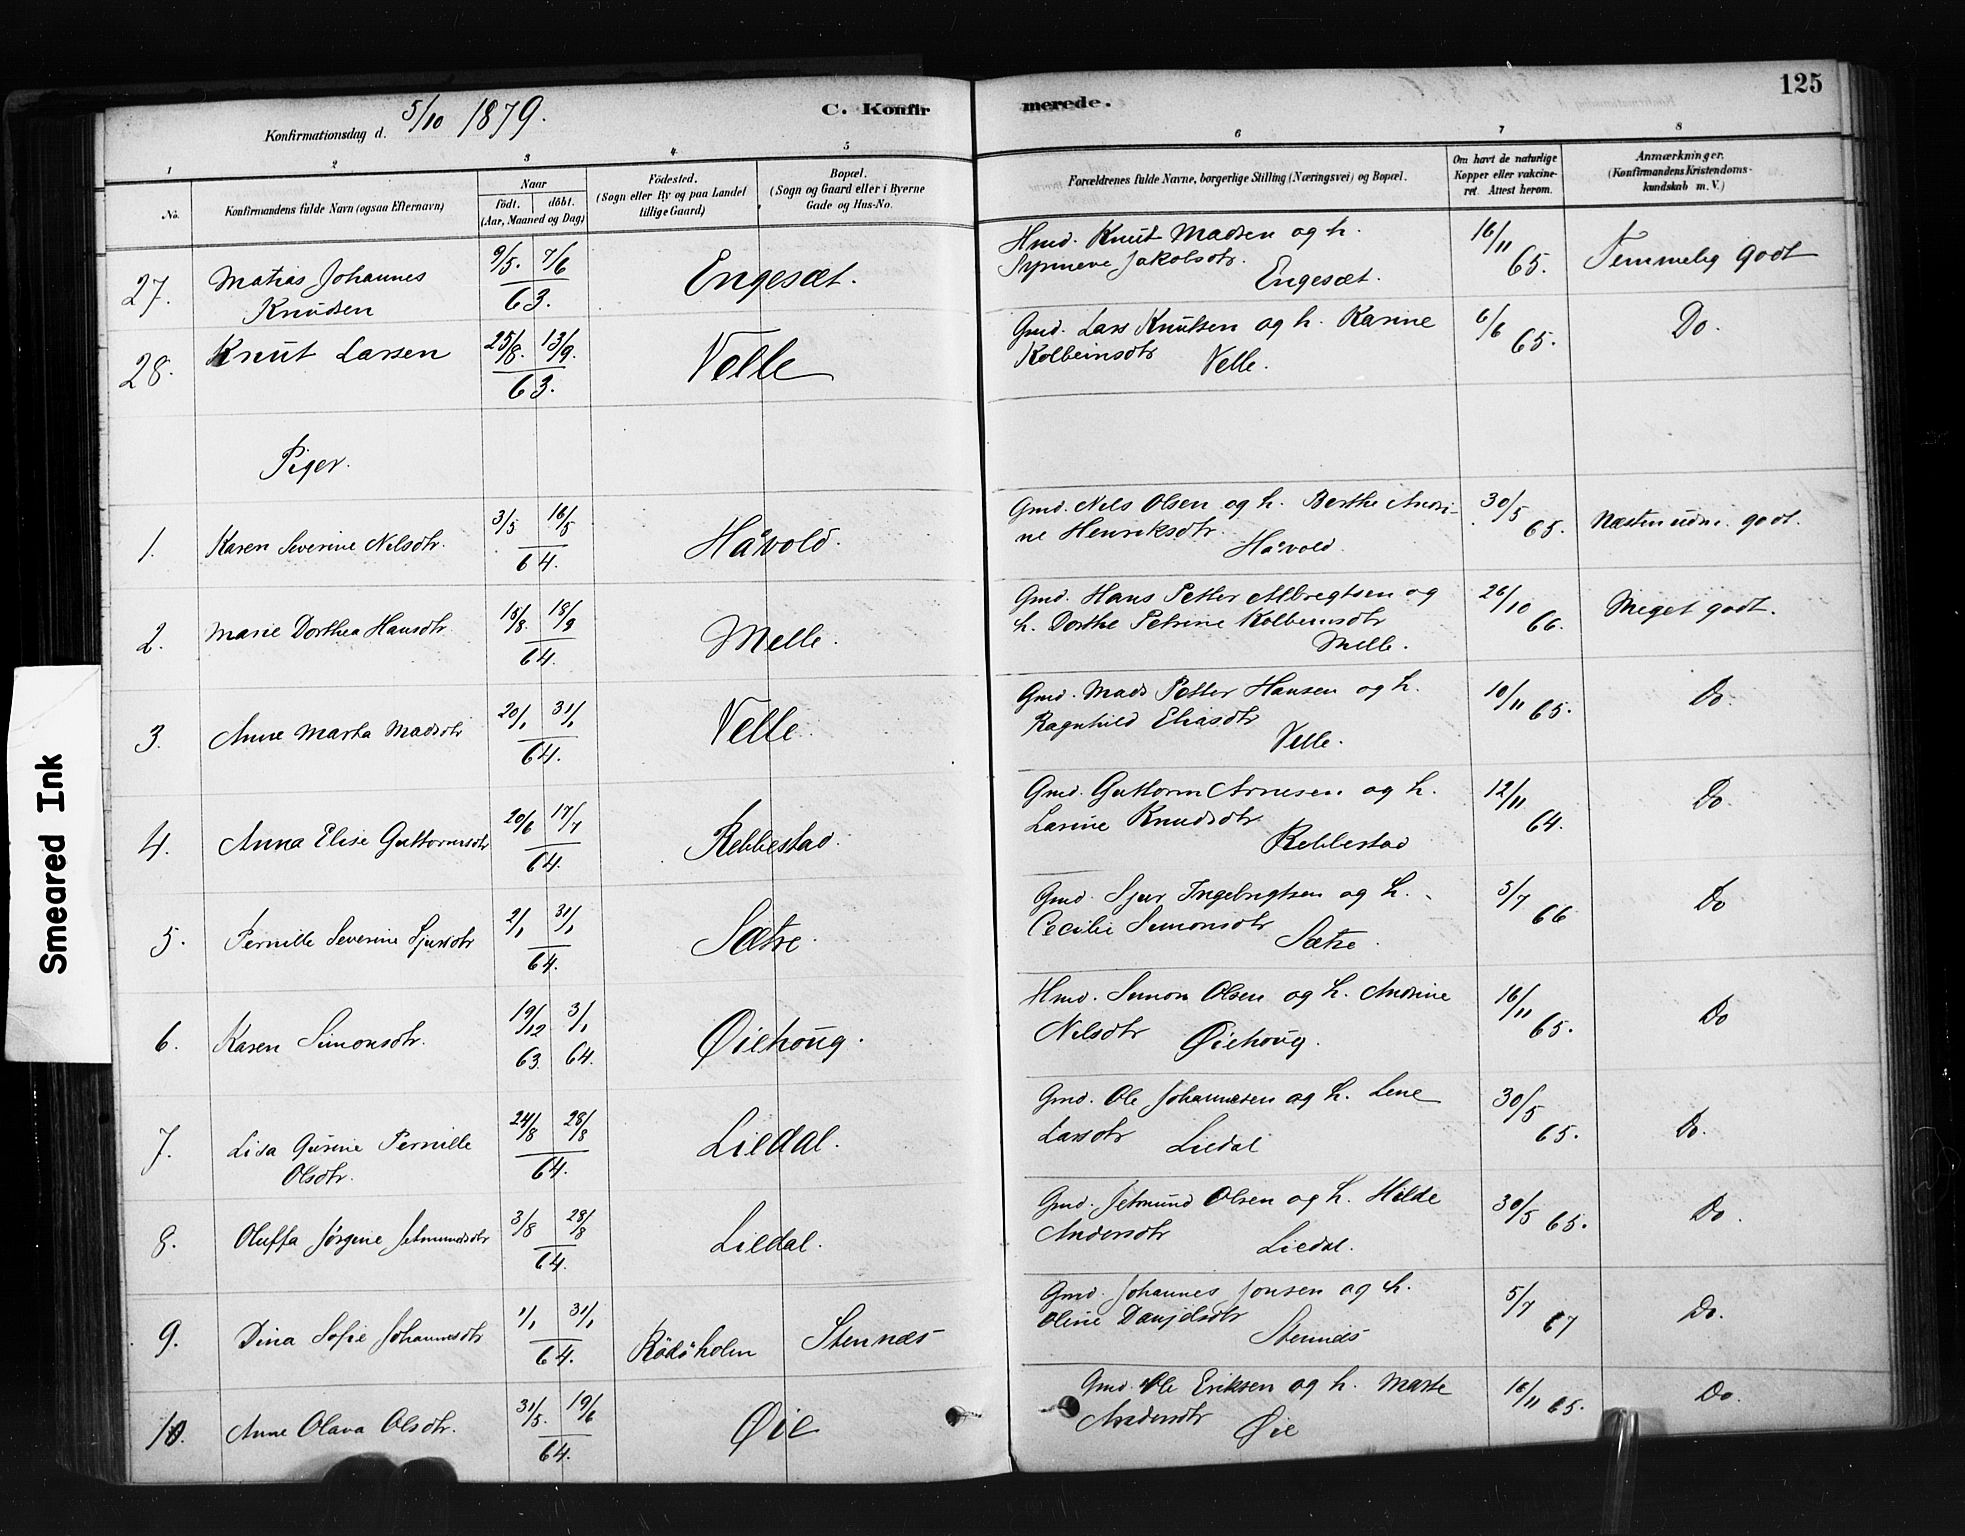 125
C. Konfir merede.
Konfirmationsdag d. 5/10 1879.
1 2 3 4 5 6 7 8
No. Konfirmandens fulde Navn (ogsaa Efternavn) Naar födt. döbt. (Aar, Maaned og Dag)
Födested. (Sogn eller By og paa Landet tillige Gaard)
Bopæl. (Sogn og Gaard eller i Byerne Gade og Hus-No.
Forældrenes fulde Navne, borgerlige Stilling (Næringsvei) og Bopæl.
Om havt de naturlige Kopper eller vakcineret. Attest herom.
Anmærkninger. (Konfirmandens Kristendomskundskab m. V.)
27. Matias Johannes Knudsen 9/5. 7/6 63. Engesæt. Hmd. Knut Madsen og h. Synneve Jakobsdtr. Engesæt. 16/11 65. Temmelig godt
28. Knut Larsen 25/8. 13/9. 63. Velle Gmd. Lars Knutsen og h. Karine Kolbeinsdtr Velle. 6/6 65. Do.
Piger.
1. Karen Severine Nilsdtr. 3/5 16/5 64. Håvold. Gmd. Nels Olsen og h. Berthe Andrine Henriksdtr. Håvold. 30/5 65. Næsten udm. godt.
2. Marie Dorthea Hansdtr. 18/8. 64. Melle. Gmd. Hans Petter Albregtsen og h. Dorthe Petrine Kolbeinsdtr Melle. 26/10 66. Meget godt.
3. Anne Marta Madsdtr 20/1 31/1 64. Velle. Gmd. Mads Petter Hansen og h. Ragnhild Eliasdtr Velle. 10/11 65. Do.
4. Anna Elise Guttormsdtr 20/6 17/7 64. Rebbestad. Gmd. Guttorm Arnesen og h. Larine Knudsdtr Rebbestad 12/11 64. Do
5. Pernille Severine Sjursdtr 2/1 31/1 64. Sætre. Gmd. Sjur Ingebrigtsen og h. Cecilie Simonsdtr Sætre. 5/7 66 Do
6. Karen Simonsdtr. 19/12 63. 3/1 64. Øiehoug. Hmd. Simon Olsen og h. Andrine Nilsdtr Øiehoug. 16/11 65. Do
7. Lisa Gurine Pernille Olsdtr. 24/8 28/8 64. Liedal. Gmd. Ole Johannesen og h. Lene Larsdtr Liedal 30/5 65. Do.
8. Oluffa Jørgine Jetmundsdtr 3/8 28/8 64. Liedal. Gmd. Jetmund Olsen og h. Hilde Andersdtr Liedal. 30/5 65. Do.
9. Dina Sofie Johannesdtr 1/1 31/1 64. Rödsholm Stennes Gmd. Johannes Jonsen og h. Oline Danjelsdtr Stennes 5/7 67 Do.
10. Anne Olava Olsdtr. 31/5. 19/6 64. Øie Gmd. Ole Eriksen og h. Marte Andersdtr Øie 16/11 65. Do.
Smeared Ink